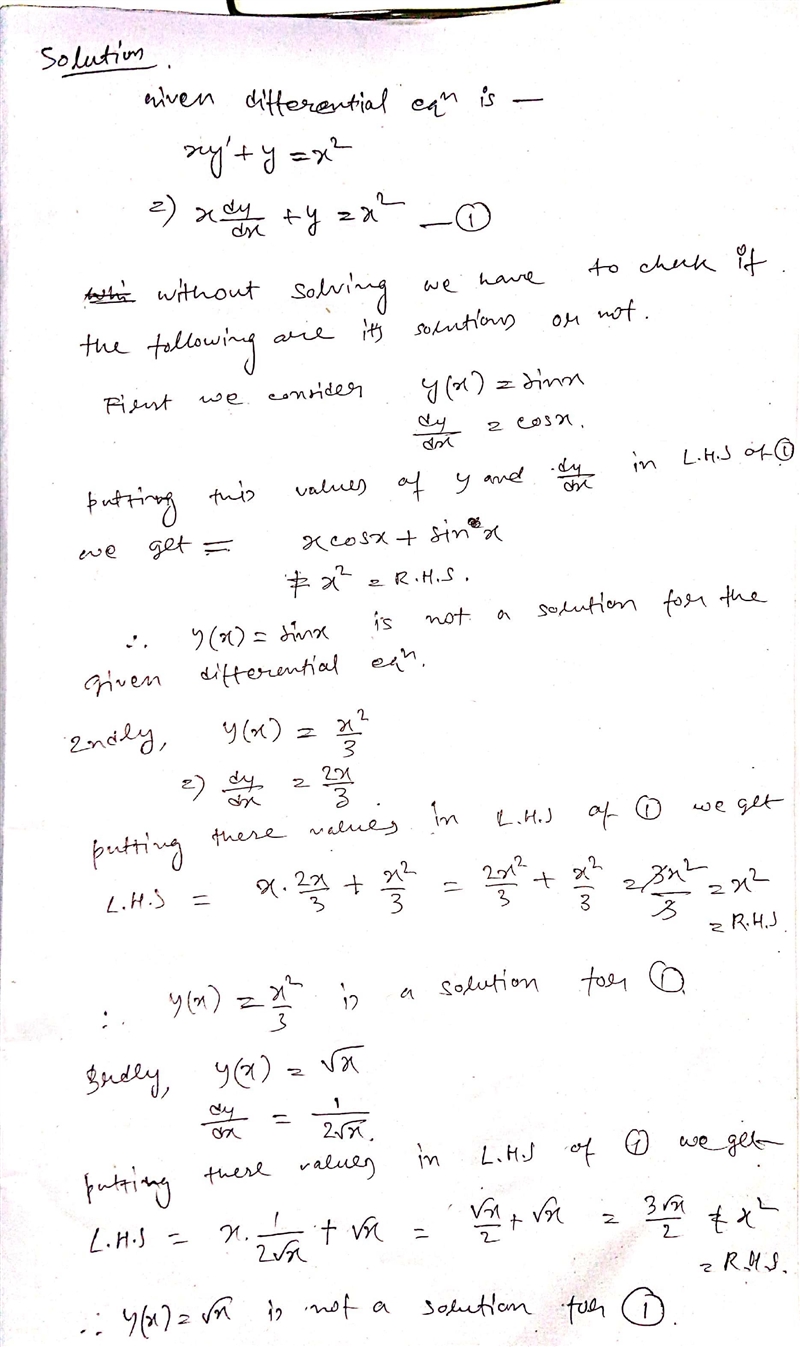 Solution.
Given differential eqn is —
xy' + y = x²
=) x dy/dx + y = x² — ①
without solving we have to check if
the following are its solutions or not.
First we consider y(x) = sinx
dy/dx = cosx.
putting this values of y and dy/dx in L.H.S of ①
we get = x cosx + sin x
≠ x² = R.H.S.
∴ y(x) = sinx is not a solution for the
given differential eqn.
2ndly, y(x) = x²/3
=) dy/dx = 2x/3
putting these values in L.H.S of ① we get
L.H.S = x. 2x/3 + x²/3 = 2x²/3 + x²/3 = 3x²/3 = x²
= R.H.S.
∴ y(x) = x²/3 is a solution for ①.
3rdly, y(x) = √x
dy/dx = 1/2√x.
putting these values in L.H.S of ① we get
L.H.S = x. 1/2√x + √x = √x/2 + √x = 3√x/2 ≠ x²
= R.H.S.
∴ y(x) = √x is not a solution for ①.